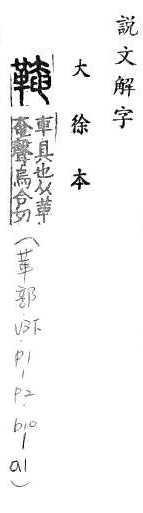 説文解字
大徐本
鞥
車具也从革
奄聲烏合切
(革部.V3下.P1-P2.b10-a1)